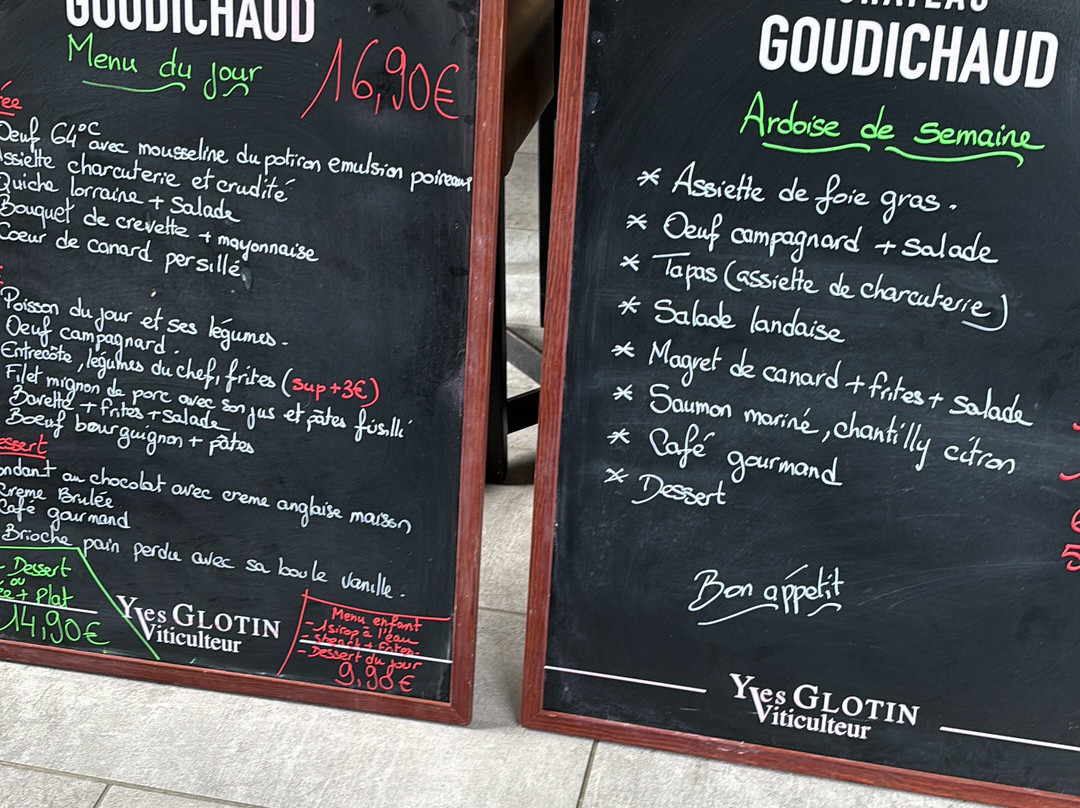 GOUDICHAUD
Menu du jour
16,90€
ée
Oeuf 64°C avec mousseline du potiron emulsion poireaux
Assiette charcuterie et crudité
Quiche lorraine + Salade
Bouquet de crevette + mayonnaise
Coeur de canard persillé
Poisson du jour et ses légumes.
Oeuf campagnard.
Entrecôte, légumes du chef, frites (sup +3€)
Filet mignon de porc avec son jus et pâtes fusilli
Bavette + frites + salade
Boeuf bourguignon + pâtes
essert
ondant au chocolat avec creme anglaise maison
Creme Brulée
Café gourmand
Brioche pain perdu avec sa boule vanille.
- Dessert
ou
ée + Plat
14,90€
Yves GLOTIN
Viticulteur
Menu enfant
- 1 sirop à l'eau
- Steack + frites.
- Dessert du jour
9,90€
CHATEAU
GOUDICHAUD
Ardoise de Semaine
* Assiette de foie gras.
* Oeuf campagnard + salade
* Tapas (assiette de charcuterie)
* Salade landaise
* Magret de canard + frites + salade
* Saumon mariné, chantilly citron
* Café gourmand
* Dessert
Bon appétit
Yves GLOTIN
Viticulteur